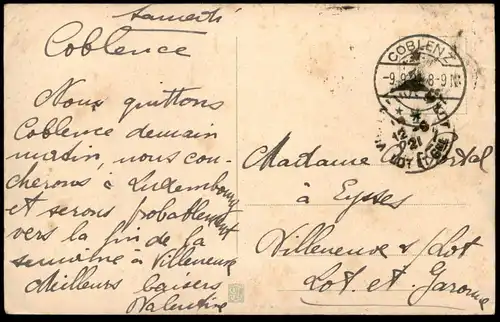 Samedi
Coblence
Nous quittons
Coblence demain
matin, nous cou-
cherons à Luxembourg
et serons probablement
vers la fin de la
semaine à Villeneuve
Meilleurs baisers
Valentine
COBLENZ
8-9 N
Madame
à Eysses
Villeneuve s/Lot
Lot et Garonne